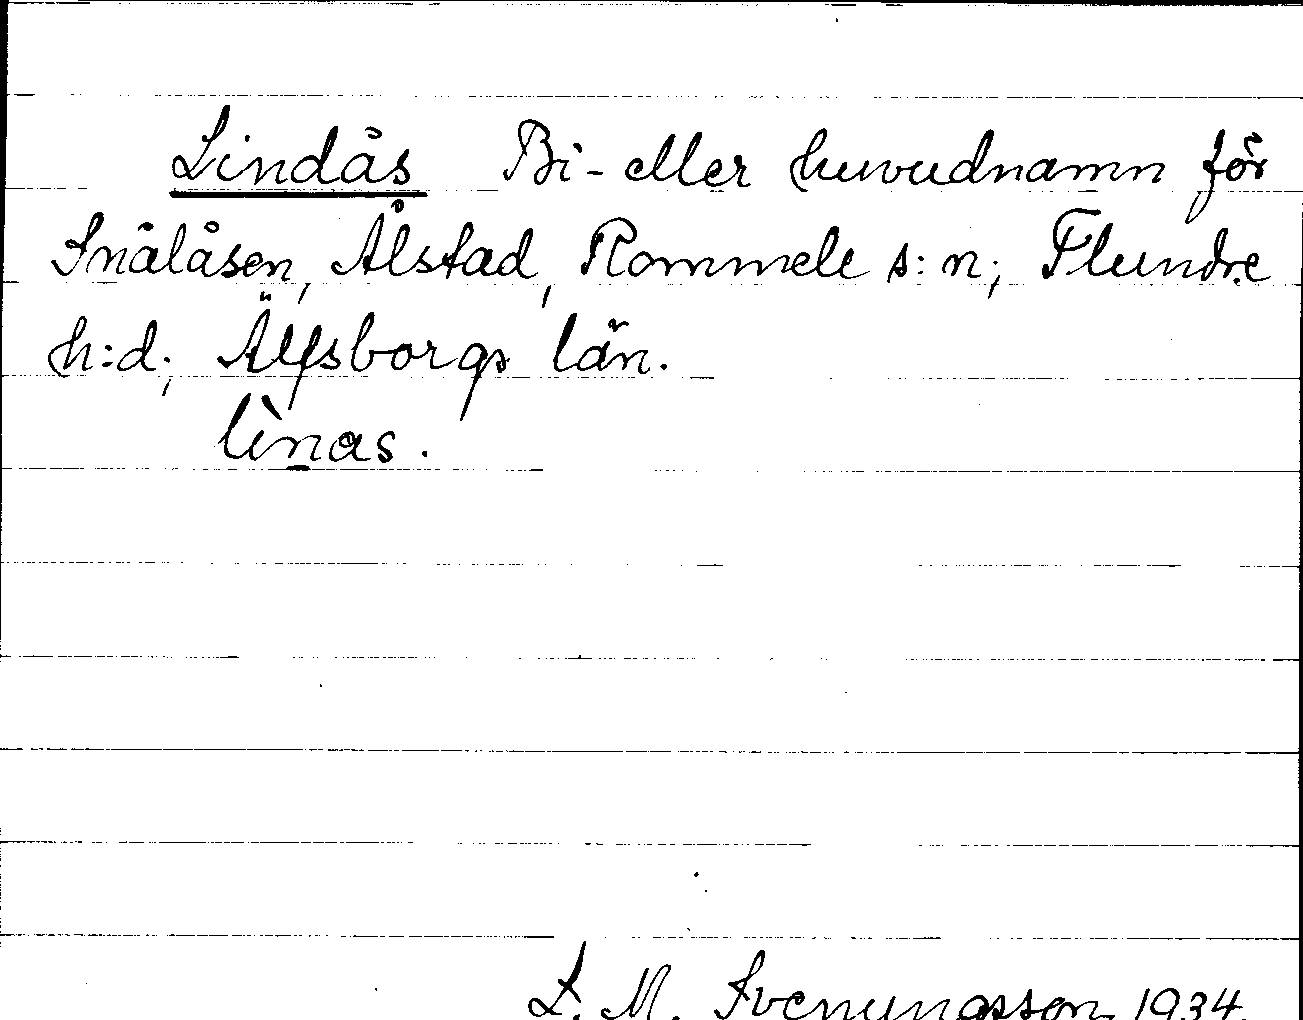 Lindås Bi- eller huvudnamn för
Snålåsen, Ålstad, Rommele s:n; Flundre
h:d; Älfsborgs län.
lìnas.
L. M. Svenungsson 1934.